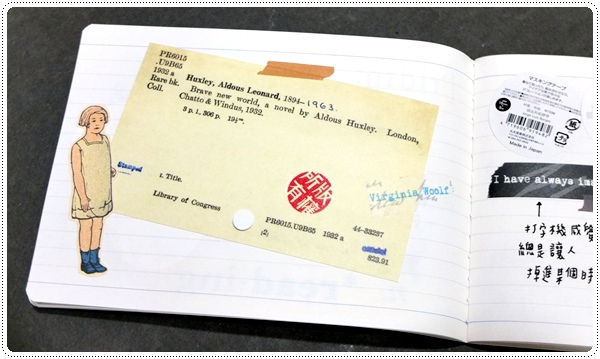 PR6015
.U9B65
1932 a
Rare bk.
Coll.
Huxley, Aldous Leonard, 1894–1963.
Brave new world, a novel by Aldous Huxley. London,
Chatto & Windus, 1932.
3 p. 1, 306 p. 19½ᶜᵐ.
Stamped
1. Title.
Library of Congress
版權所有
PR6015.U9B65 1932 a
(2)
44-33297
823.91
Virginia Woolf
マスキングテープ
紙
Made in Japan
I have always im
打字機感覺
總是讓人
掉進某個時